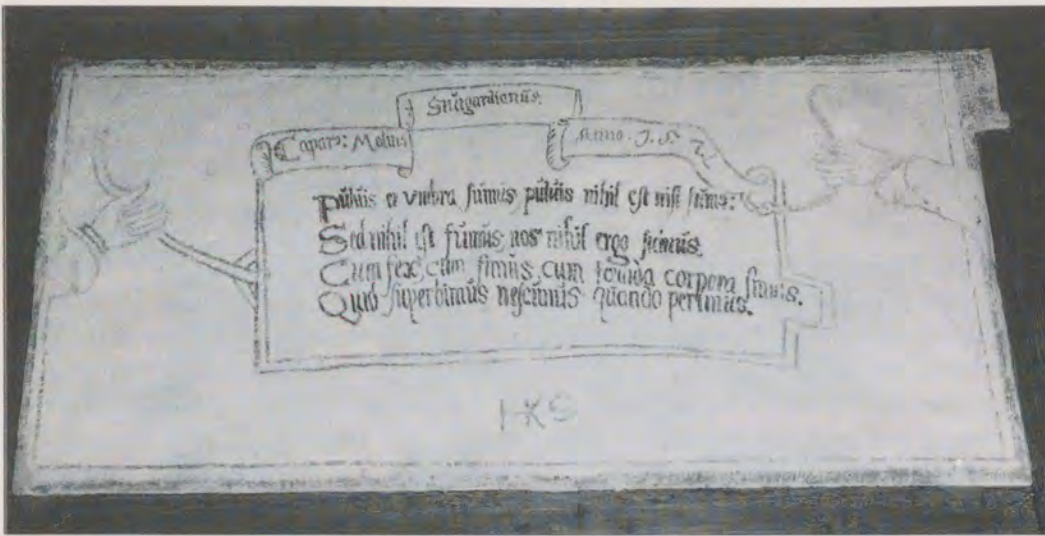 Caspar: Molitor
Stutgardianus.
Anno. 1.5.7
Pulvis et vmbra sumus, pulvis nihil est nisi fumus:
Sed nihil est fumus, nos nihil ergo sumus.
Cum fex, cum fimus, cum corpora simus.
Quid superbimus nescimus quando perimus.
HKS